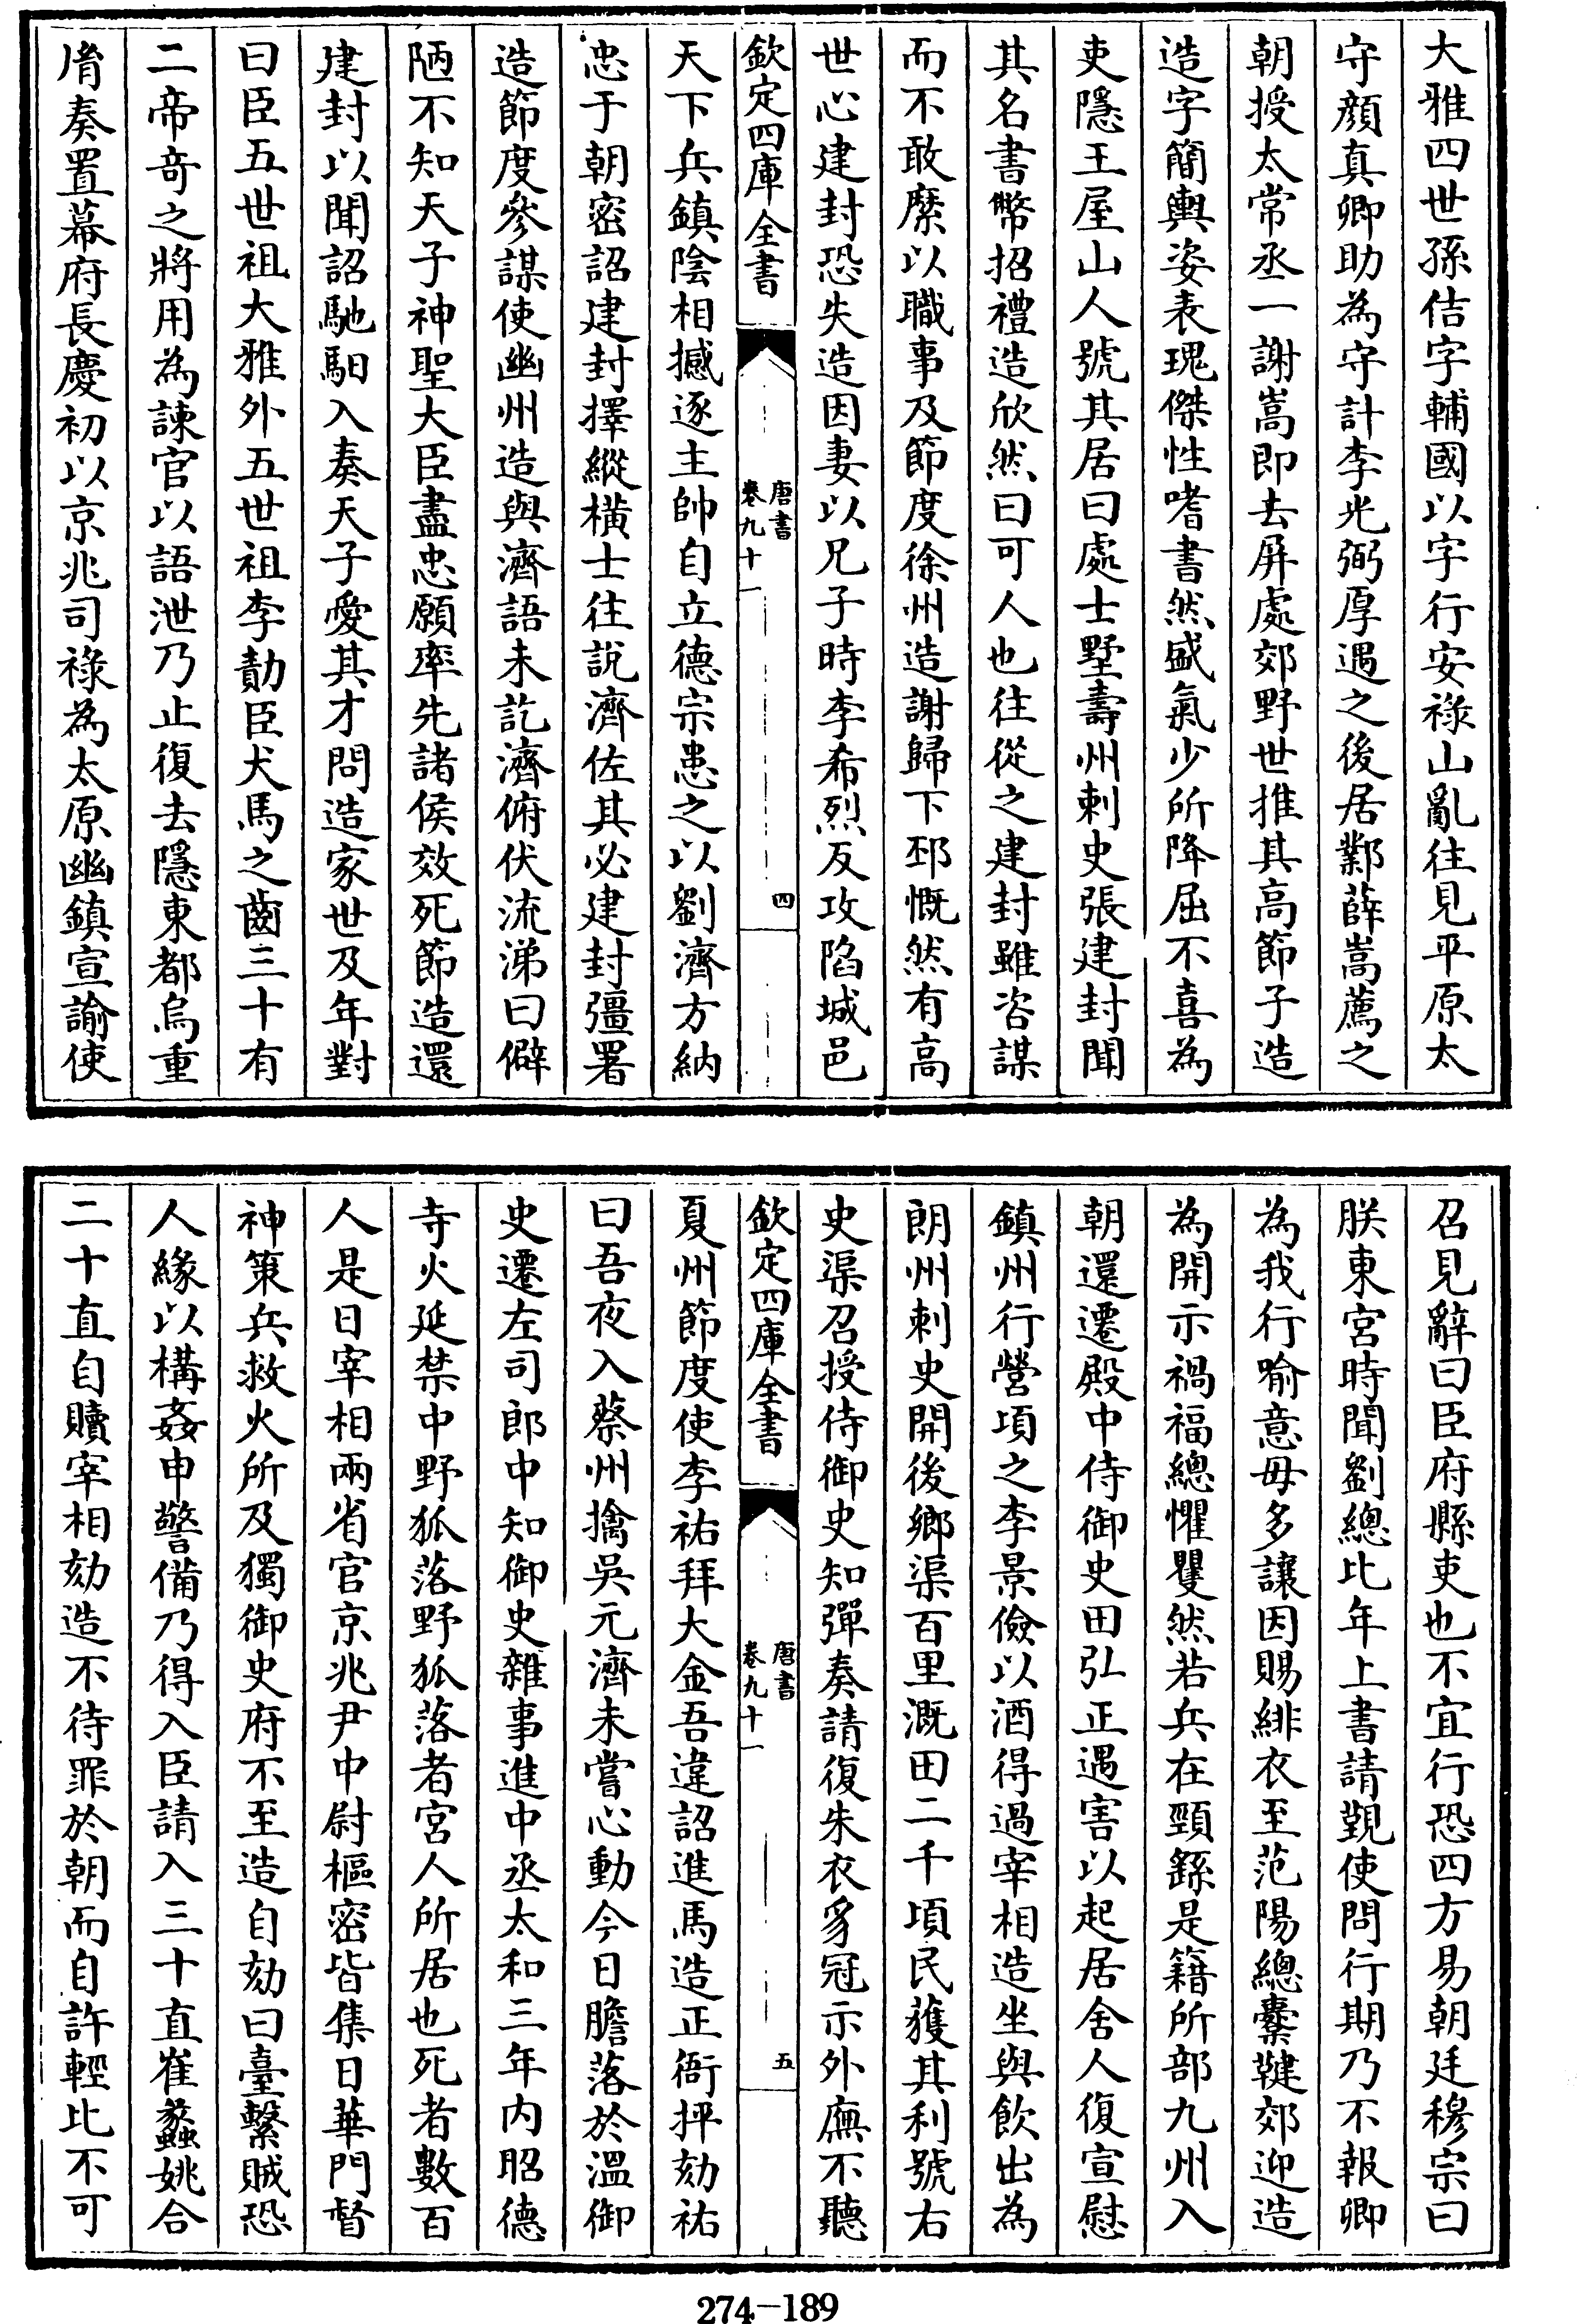 大雅四世孫佶字輔國以字行安祿山亂往見平原太
守顔真卿助為守計李光弼厚遇之後居鄴薛嵩薦之
朝授太常丞一謝嵩即去屏處郊野世推其高節子造
造字簡輿姿表瑰傑性嗜書然盛氣少所降屈不喜為
吏隱王屋山人號其居曰處士墅壽州刺史張建封聞
其名書幣招禮造欣然曰可人也往從之建封雖咨謀
而不敢縻以職事及節度徐州造謝歸下邳慨然有高
世心建封恐失造因妻以兄子時李希烈反攻陷城邑
欽定四庫全書
唐書
卷九十一
四
天下兵鎮陰相撼逐主帥自立德宗患之以劉濟方納
忠于朝密詔建封擇縱横士往說濟佐其必建封彊署
造節度參謀使幽州造與濟語未訖濟俯伏流涕曰僻
陋不知天子神聖大臣盡忠願率先諸侯效死節造還
建封以聞詔馳馹入奏天子愛其才問造家世及年對
曰臣五世祖大雅外五世祖李勣臣犬馬之齒三十有
二帝奇之將用為諫官以語泄乃止復去隱東都烏重
胤奏置幕府長慶初以京兆司祿為太原幽鎮宣諭使
召見辭曰臣府縣吏也不宜行恐四方易朝廷穆宗曰
朕東宮時聞劉總比年上書請覲使問行期乃不報卿
為我行喻意毋多讓因賜緋衣至范陽總櫜鞬郊迎造
為開示禍福總懼矍然若兵在頸繇是籍所部九州入
朝還遷殿中侍御史田弘正遇害以起居舍人復宣慰
鎮州行營頃之李景儉以酒得過宰相造坐與飲出為
朗州刺史開後鄉渠百里溉田二千頃民獲其利號右
史渠召授侍御史知彈奏請復朱衣豸冠示外廡不聽
欽定四庫全書
唐書
卷九十一
五
夏州節度使李祐拜大金吾違詔進馬造正衙抨劾祐
曰吾夜入蔡州擒吳元濟未嘗心動今日膽落於溫御
史遷左司郎中知御史雜事進中丞太和三年内昭德
寺火延禁中野狐落野狐落者宮人所居也死者數百
人是日宰相兩省官京兆尹中尉樞密皆集日華門督
神策兵救火所及獨御史府不至造自劾曰臺繫賊恐
人緣以構姦申警備乃得入臣請入三十直崔蠡姚合
二十直自贖宰相劾造不待罪於朝而自許輕比不可
274-189